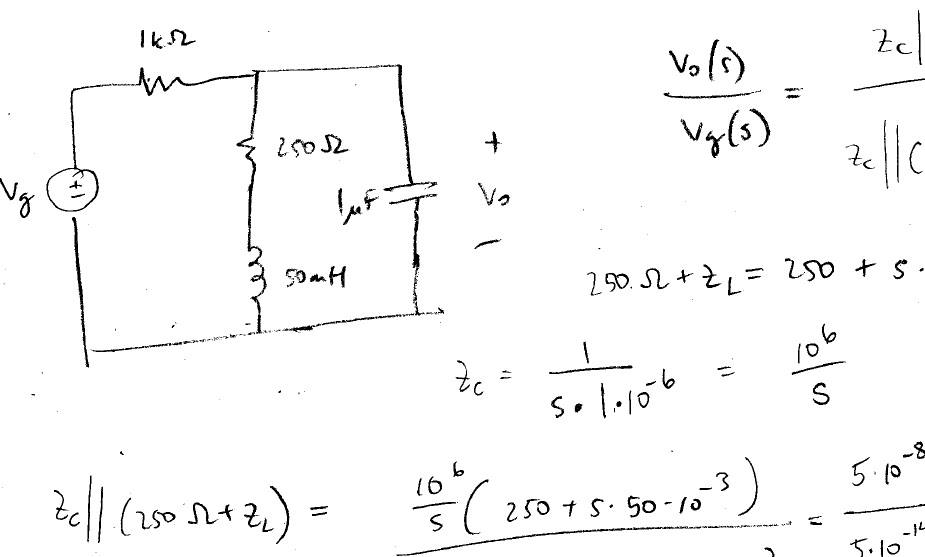 1kΩ
Vg
250Ω
50mH
1μF
+
Vo
−
Vo(s)/Vg(s) = Zc|
Zc||(
250Ω + ZL = 250 + s·
Zc = 1/(s·1·10^-6) = 10^6/s
Zc||(250Ω + ZL) = 10^6/s (250 + s·50·10^-3) = 5·10^-8
5·10^-14